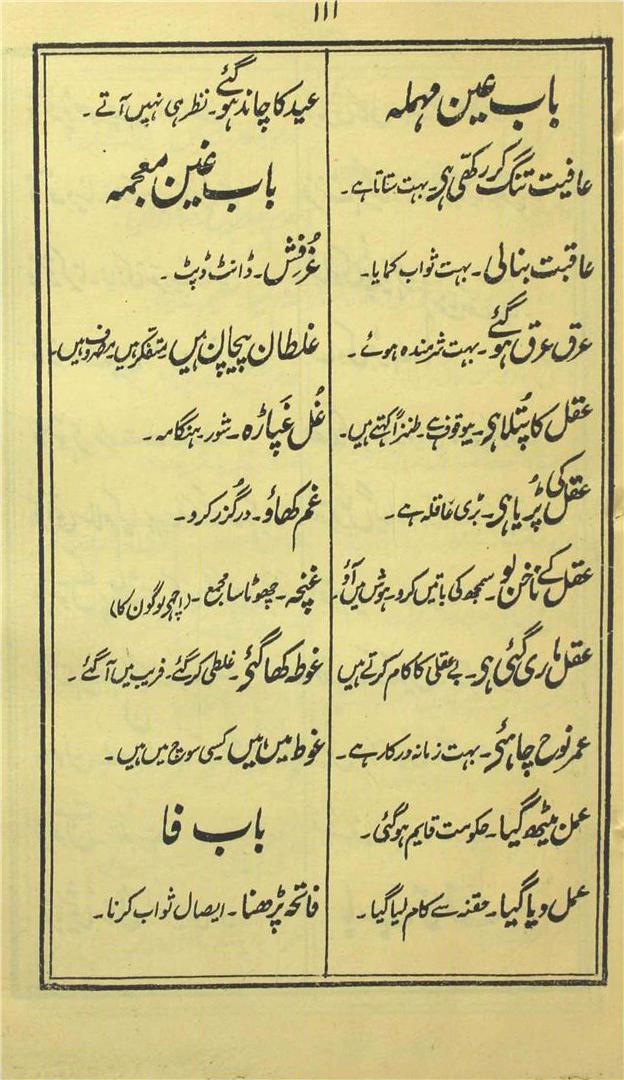 ۱۱۱
باب عین مہملہ
عافیت تنگ کر رکھی ہی۔ بہت ستاتا ہے۔
عاقبت بنالی۔ بہت ثواب کمایا۔
عرق عرق ہوگئے۔ بہت شرمندہ ہوئے۔
عقل کا پُتلا ہی۔ بیوقوف ہے۔ طنزاً کہتے ہیں۔
عقل کی پُڑیا ہی۔ بڑی عاقلہ ہے۔
عقل کے ناخن لو۔ سمجھ کی باتیں کرو۔ ہوش میں آؤ۔
عقل ماری گئی ہی۔ بے عقلی کا کام کرتے ہیں
عمر نوح چاہئی۔ بہت زمانہ درکار ہے۔
عمل بیٹھ گیا۔ حکومت قایم ہوگئی۔
عمل دیا گیا۔ حقنہ سے کام لیا گیا۔
عید کا چاند ہوگئے۔ نظر ہی نہیں آتے۔
باب غین معجمہ
غُرفِش۔ ڈانٹ ڈپٹ۔
غلطان پیچاں ہیں متفکر ہیں مصروف ہیں۔
غُل غَپاڑہ۔ شور ہنگامہ۔
غم کھاؤ۔ درگزر کرو۔
غنچہ۔ چھوٹا سا مجمع۔ (اچھی لوگوں کا)
غوطہ کھا گئی۔ غلطی کر گئے۔ فریب میں آگئے۔
غوط میں ہیں کسی سوچ میں ہیں۔
باب فا
فاتحہ پڑھنا۔ ایصال ثواب کرنا۔